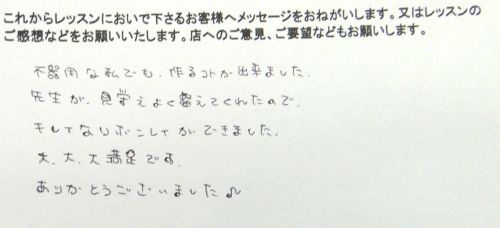 これからレッスンにおいで下さるお客様へメッセージをおねがいします。又はレッスンの
ご感想などをお願いいたします。店へのご意見、ご要望などもお願いします。
不器用な私でも、作るコトが出来ました。
先生が、見栄えよく整えてくれたので、
キレイなリボンレイができました。
大、大、大満足です。
ありがとうございました♪